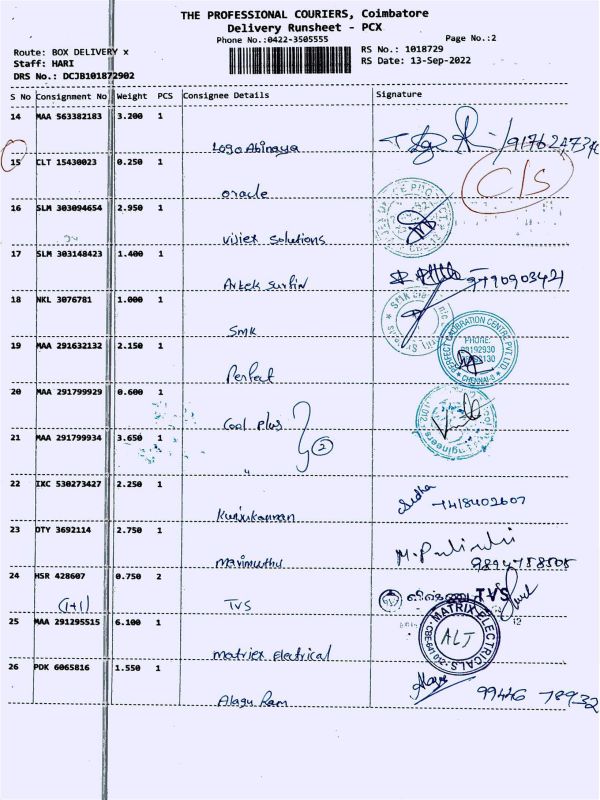 THE PROFESSIONAL COURIERS, Coimbatore
Delivery Runsheet - PCX
Phone No.:0422-3505555
Page No.:2
Route: BOX DELIVERY x
RS No.: 1018729
Staff: HARI
RS Date: 13-Sep-2022
DRS No.: DCJB101872902
S No Consignment No Weight PCS Consignee Details Signature
14 MAA 563382183 3.200 1
Logo Abinaya
15 CLT 15430023 0.250 1
C/S
oracle
16 SLM 303094654 2.950 1
Vijiex Solutions
17 SLM 303148423 1.400 1
18 NKL 3076781 1.000 1
SMK
19 MAA 291632132 2.150 1
Perfect
PERFECT CALIBRATION CENTRE PVT LTD
PHONE:
CHENNAI
20 MAA 291799929 0.600 1
Cool plus
2
21 MAA 291799934 3.650 1
"
22 IXC 530273427 2.250 1
Sudha
23 DTY 3692114 2.750 1
Marimuthu
24 HSR 428607 0.750 2
(1+1)
TVS
TVS
25 MAA 291295515 6.100 1
MATRIX ELECTRICALS
ALJ
Matriex Electrical
26 PDK 6065816 1.550 1
Alagu Ram
99446 78932